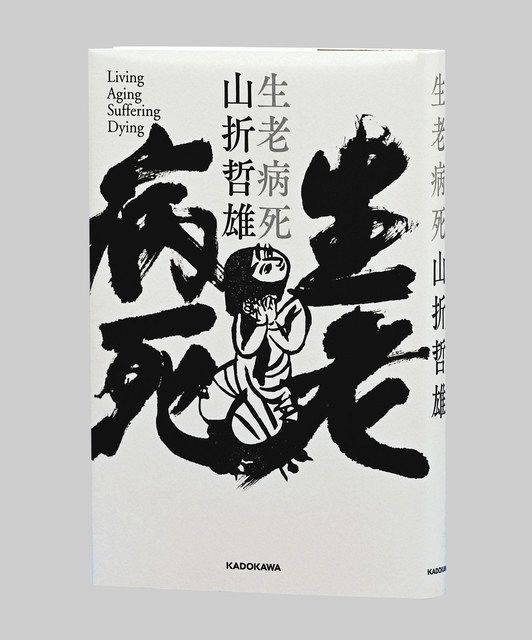 Living
Aging
Suffering
Dying
生老病死
山折哲雄
生老
病死
KADOKAWA
生老病死 山折哲雄
KADOKAWA